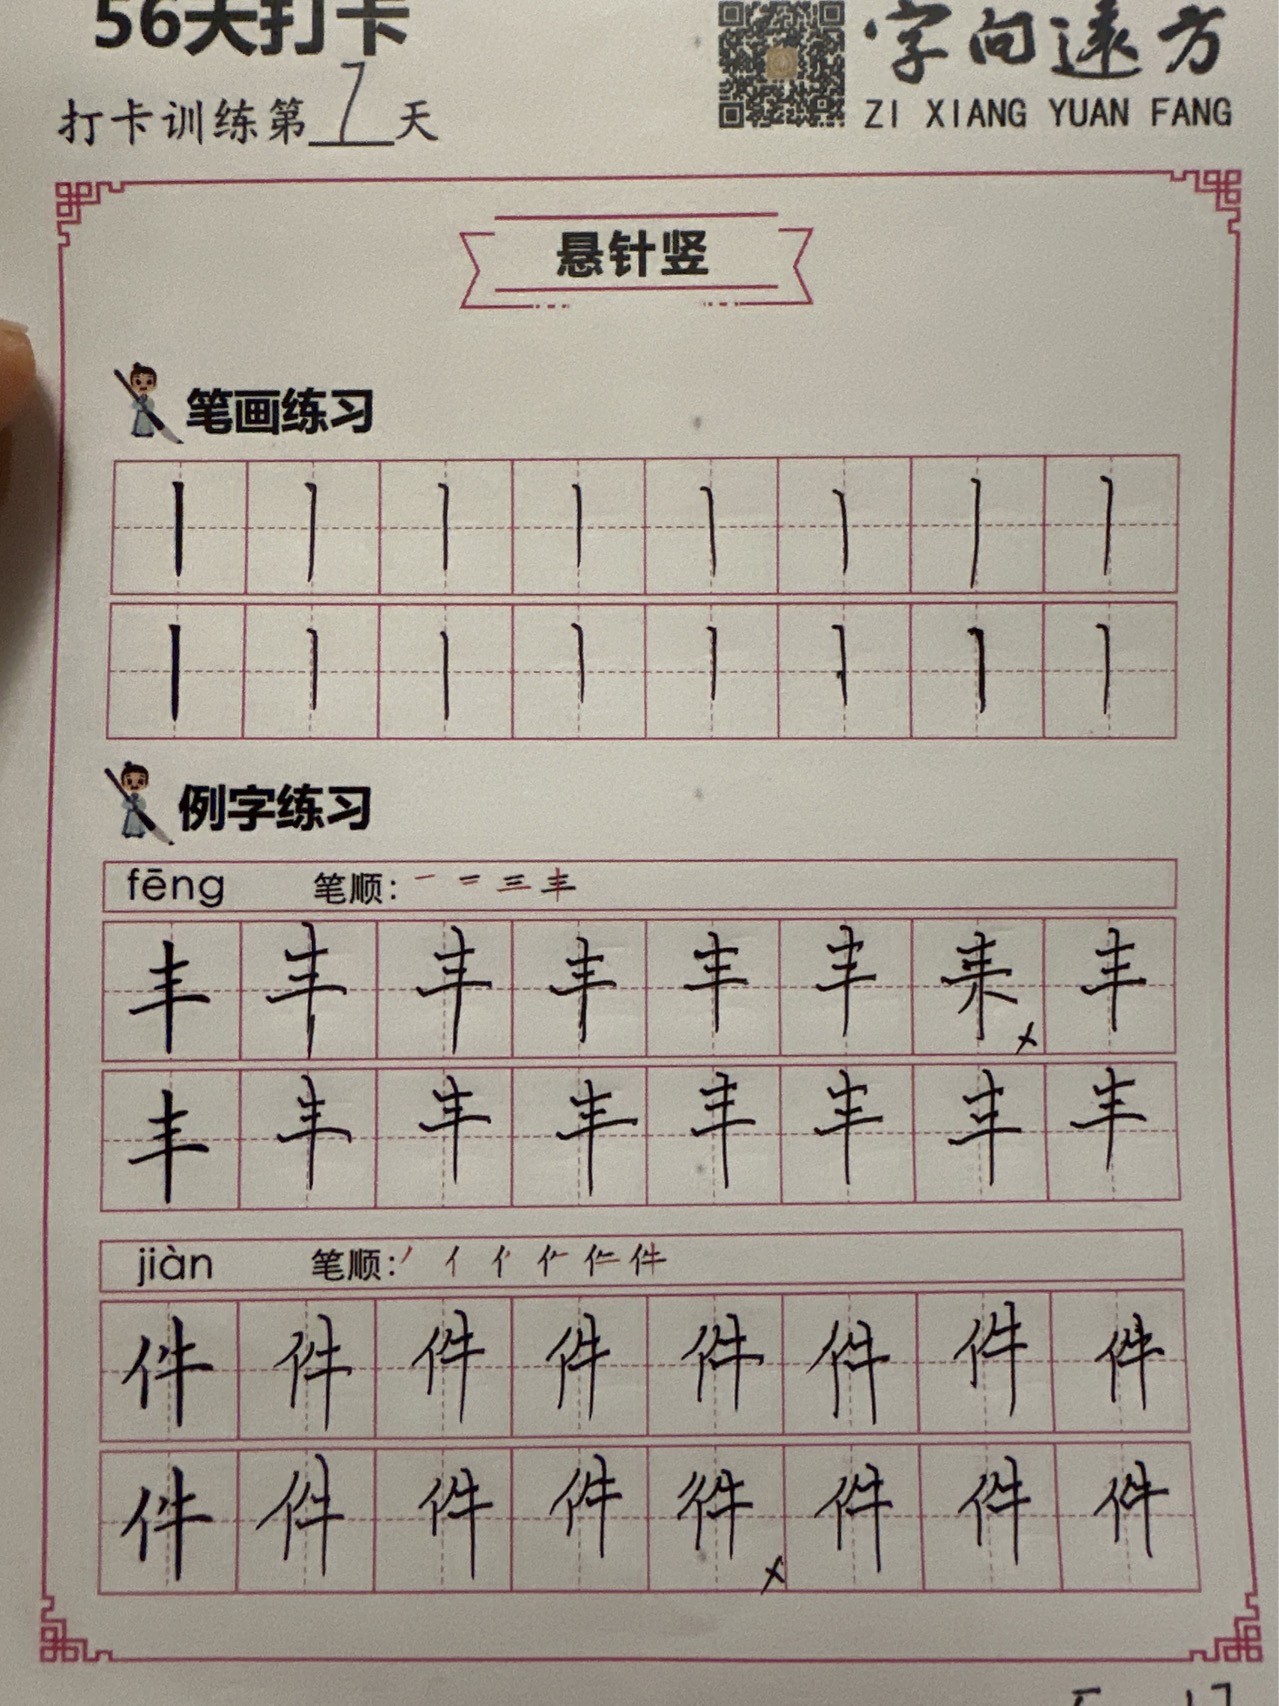 56天打卡
字向远方
打卡训练第7天
ZI XIANG YUAN FANG
悬针竖
笔画练习
丨 丨 丨 丨 丨 丨 丨 丨
丨 丨 丨 丨 丨 丨 丨 丨
例字练习
fēng 笔顺: 一 二 三 丰
丰 丰 丰 丰 丰 丰 x 丰
丰 丰 丰 丰 丰 丰 丰 丰
jiàn 笔顺: 件
件 件 件 件 件 件 件 件
件 件 件 件 x 件 件 件